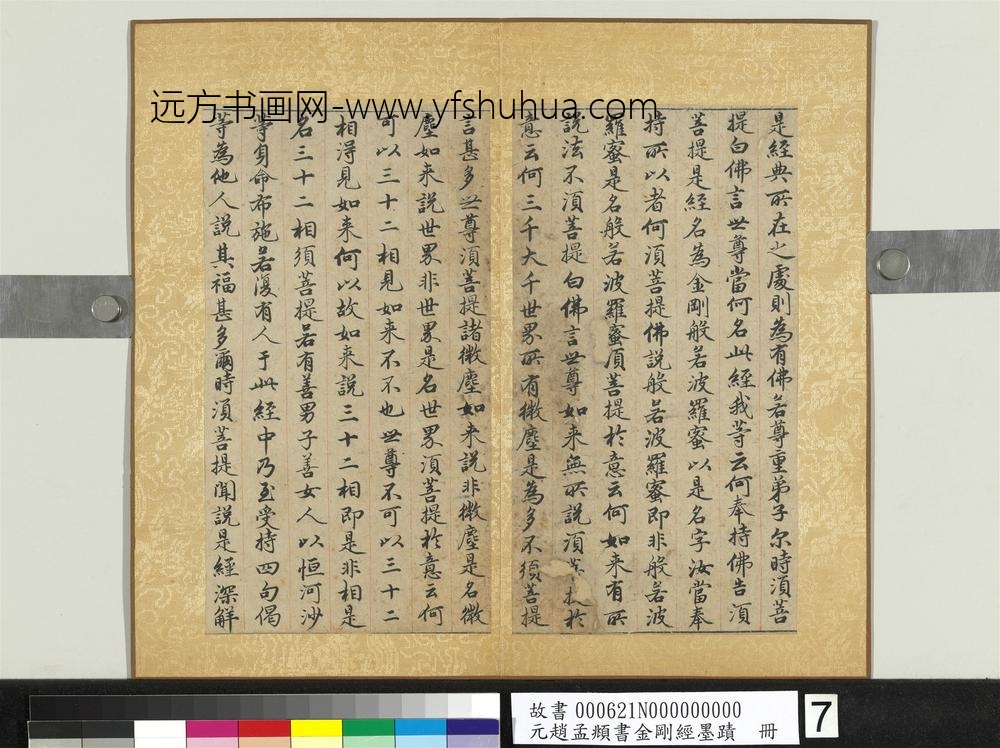 远方书画网-www.yfshuhua.com
是經典所在之處則為有佛若尊重弟子尔時湏菩
提白佛言世尊當何名此經我等云何奉持佛告湏
菩提是經名為金剛般若波羅蜜以是名字汝當奉
持所以者何湏菩提佛說般若波羅蜜即非般若波
羅蜜是名般若波羅蜜湏菩提於意云何如来有所
說法不湏菩提白佛言世尊如来無所說湏菩提於
意云何三千大千世界所有微塵是為多不須菩提
言甚多世尊湏菩提諸微塵如来說非微塵是名微
塵如来說世界非世界是名世界湏菩提於意云何
可以三十二相見如来不不也世尊不可以三十二
相得見如来何以故如来說三十二相即是非相是
名三十二相須菩提若有善男子善女人以恒河沙
等身命布施若復有人于此經中乃至受持四句偈
等為他人說其福甚多爾時湏菩提聞說是經深解
故書 000621N000000000
元趙孟頫書金剛經墨蹟 冊
7